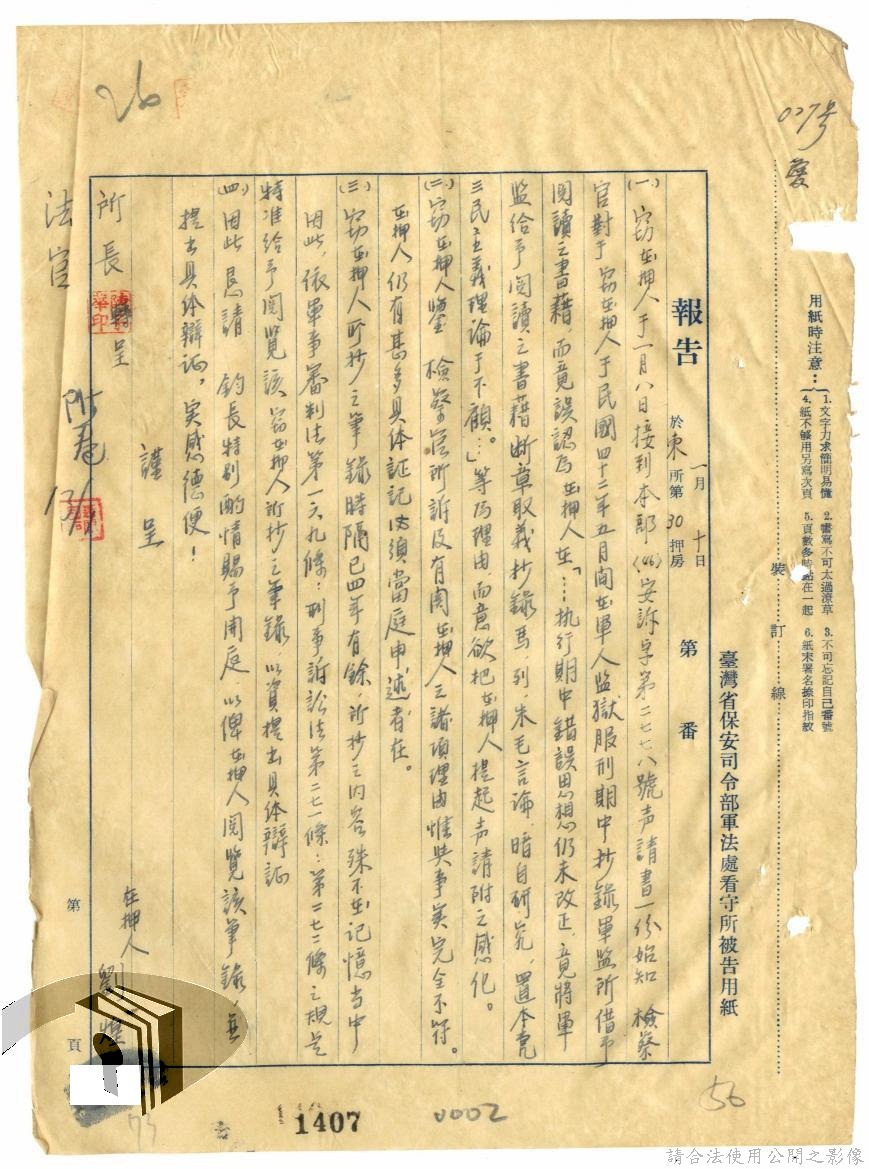 007号
用紙時注意：
1.文字力求簡明易懂 2.書寫不可太過潦草 3.不可忘記自己番號
4.紙不够用另寫次頁 5.頁數多時點在一起 6.紙末署名捺印指紋
裝訂線
臺灣省保安司令部軍法處看守所被告用紙
報告 於東所第30押房 一月十日 第 番
(一)窃在押人于一月八日接到本部(46)安訴字第二七七八號声請書一份始知 檢察
官對于窃在押人于民國四十二年五月間在軍人監獄服刑期中抄錄軍監所借予
閱讀之書藉，而竟誤認為在押人在「…执行期中錯誤思想仍未改正，竟將軍
監給予閱讀之書藉断章取义抄錄馬,列,朱毛言論，暗自研究，置本党
三民主義理論于不顧…。」等為理由，而意欲把在押人提起声請附之感化。
(二)窃在押人鑒 檢察官所訴及有関在押人之諸項理由惟與事实完全不符。
在押人仍有甚多具体証記必須當庭申述者在。
(三)窃在押人所抄之筆錄時隔已四年有餘，所抄之内容殊不在記憶当中
因此，依軍事審判法第一六九條：刑事訴訟法第二七一條：第二七二條之規定
特准給予閱覽該窃在押人所抄之筆錄，以資提出具体辯証
(四)因此 恳請 鈞長特别酌情賜予開庭 以俾在押人閱覽該筆錄，並
提出具体辯証，实感德便！
謹呈
所長 呈
法官
附卷
13/1
在押人 劉 煌
第 頁
26
56
73
1407
0002
請合法使用公開之影像